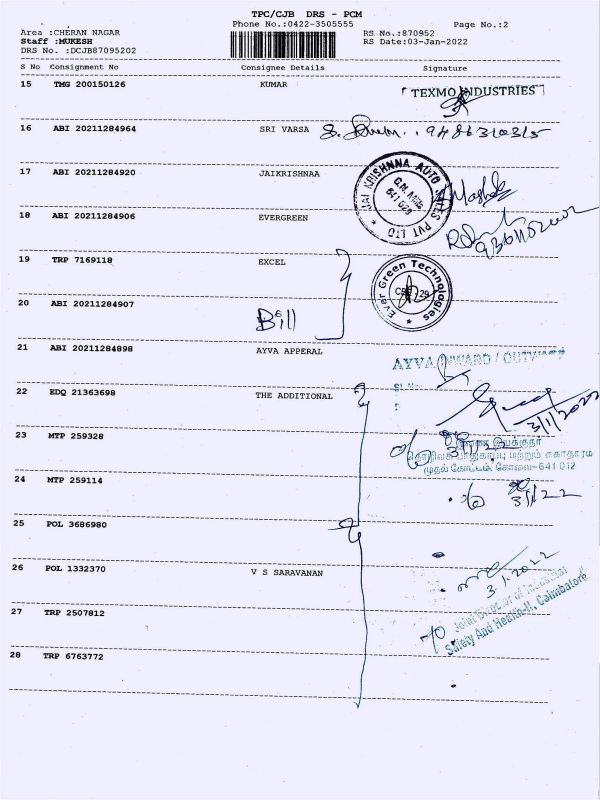 TPC/CJB DRS - PCM
Phone No.:0422-3505555 Page No.:2
Area :CHERAN NAGAR RS No.:870952
Staff :MUKESH RS Date:03-Jan-2022
DRS No. :DCJB87095202
S No Consignment No Consignee Details Signature
15 TMG 200150126 KUMAR TEXMO INDUSTRIES
16 ABI 20211284964 SRI VARSA 9486310315
17 ABI 20211284920 JAIKRISHNAA
JAI KRISHNNA AUTO PVT LTD
641 029
18 ABI 20211284906 EVERGREEN
19 TRP 7169118 EXCEL
Ever Green Technologies
20 ABI 20211284907 Bill
21 ABI 20211284898 AYVA APPERAL AYVA INWARD / OUTWARD
22 EDQ 21363698 THE ADDITIONAL
3/1/2022
23 MTP 259328
இயக்குநர்
பாதுகாப்பு மற்றும் சுகாதாரம
முதல் கோட்டம், கோவை-641 012
24 MTP 259114
3/1/22
25 POL 3686980
26 POL 1332370 V S SARAVANAN
3.1.2022
27 TRP 2507812
Joint Director of Industrial
Safety And Health-II, Coimbatore
28 TRP 6763772